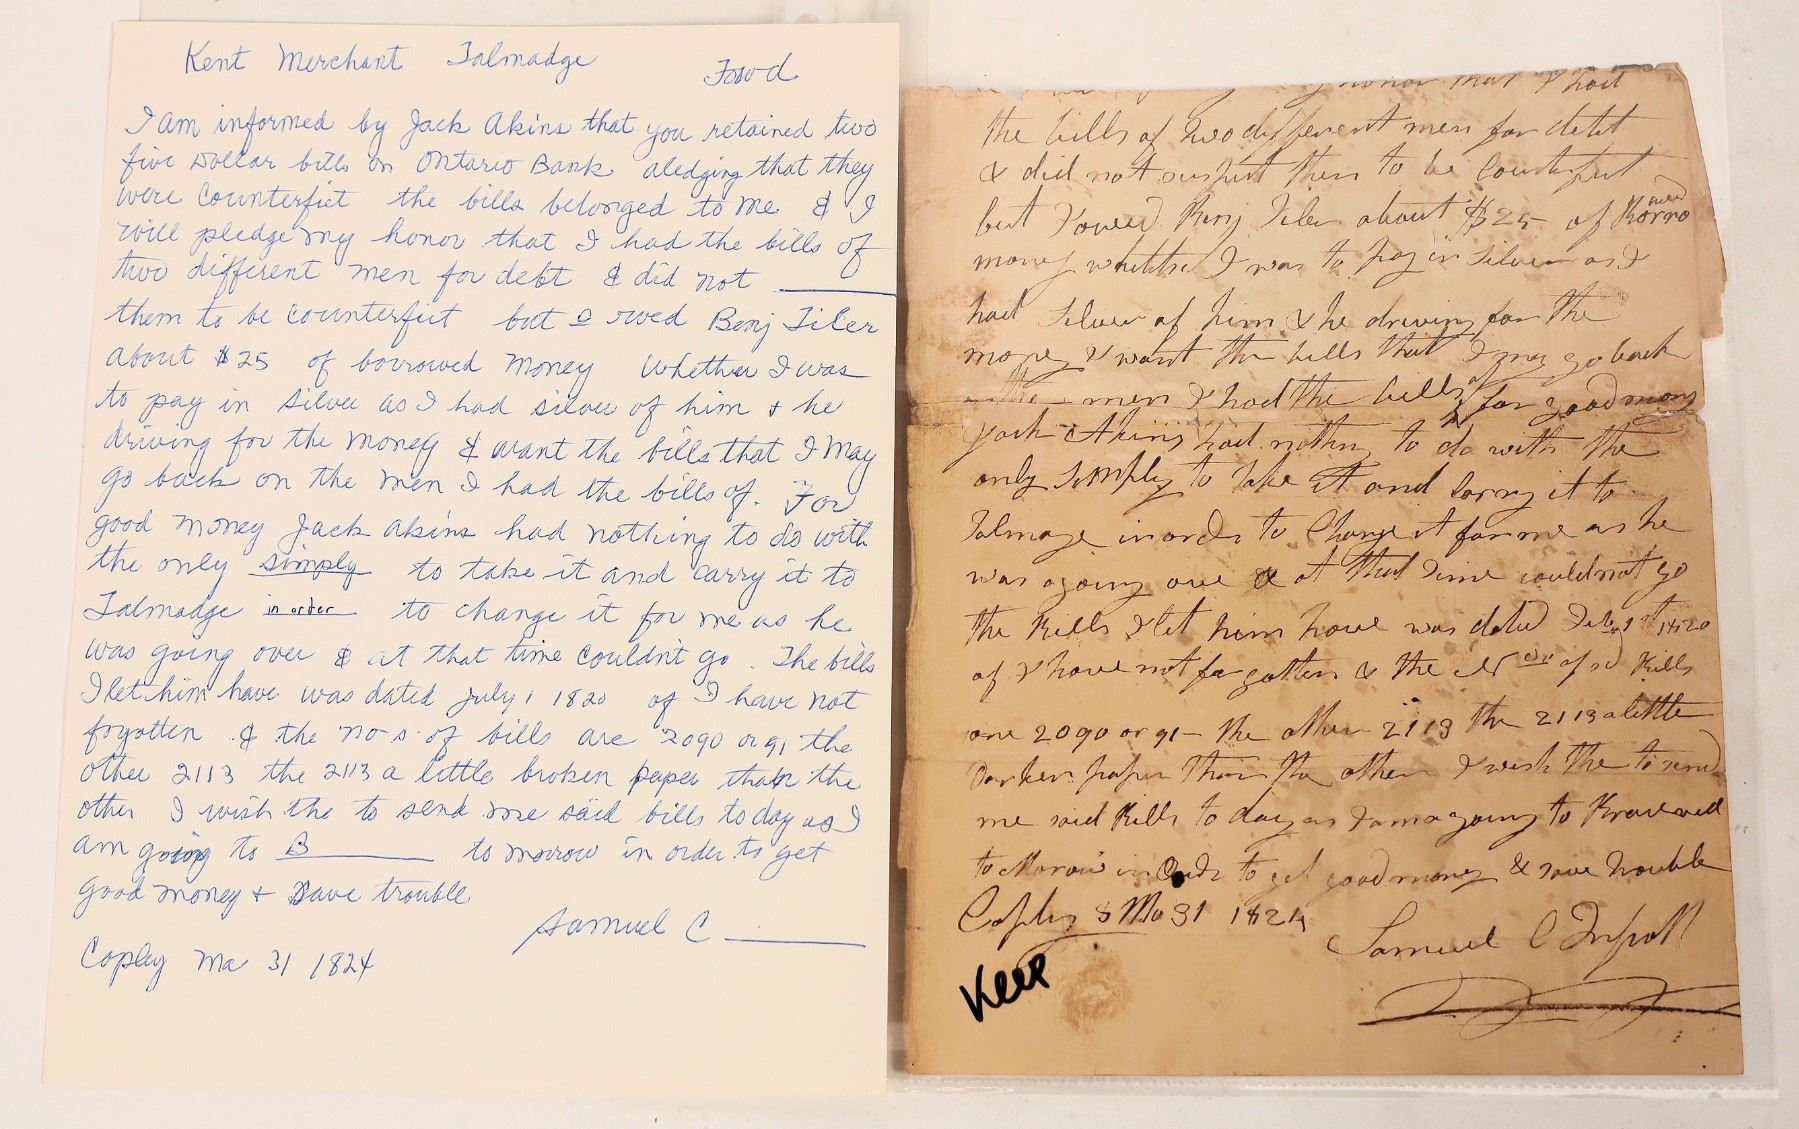 Kent Merchant Talmadge
I am informed by Jack Akins that you retained two
five Dollar bills on Ontario Bank aledging that they
were Counterfiet the bills belonged to me & I
will pledge my honor that I had the bills of
two different men for debt & did not ____
them to be counterfeit but I owed Benj Tiler
about $25 of borrowed money Whether I was
to pay in silver as I had silver of him + he
driving for the money & want the bills that I may
go back on the men I had the bills of. For
good money Jack Akins had nothing to do with
the only simply to take it and carry it to
Talmadge in order to change it for me as he
was going over & at that time couldn't go. The bills
I let him have was dated July 1 1820 of I have not
forgotten & the no s. of bills are 2090 or 91 the
other 2113 the 2113 a little broken paper than the
other I wish the to send me said bills today as I
am going to B____ to morrow in order to get
good money + save trouble
Samuel C ____
Copley Ma 31 1824
honor that I had
the bills of two different men for debt
& did not suspect them to be Counterfeit
but I owed Benj Tiler about $25 of Borro
wed
money whether I was to pay in Silver as I
had Silver of him & he driving for the
money & want the bills that I may go back
men I had the bills of for good mony
Jack Akins had nothing to do with the
only simply to take it and carry it to
Talmage in order to Change it for me as he
was agoing over & at that time could not go
the Bills I let him have was dated Feb 1st 1820
of I have not forgotten & the of sd Bills
one 2090 or 91 - the other 2113 the 2113 a little
darker paper than the other I wish the to send
me said Bills to day as I am agoing to
to Morow in Order to get good money & save trouble
Copley 3 Mo 31 1824
Samuel C
Keep